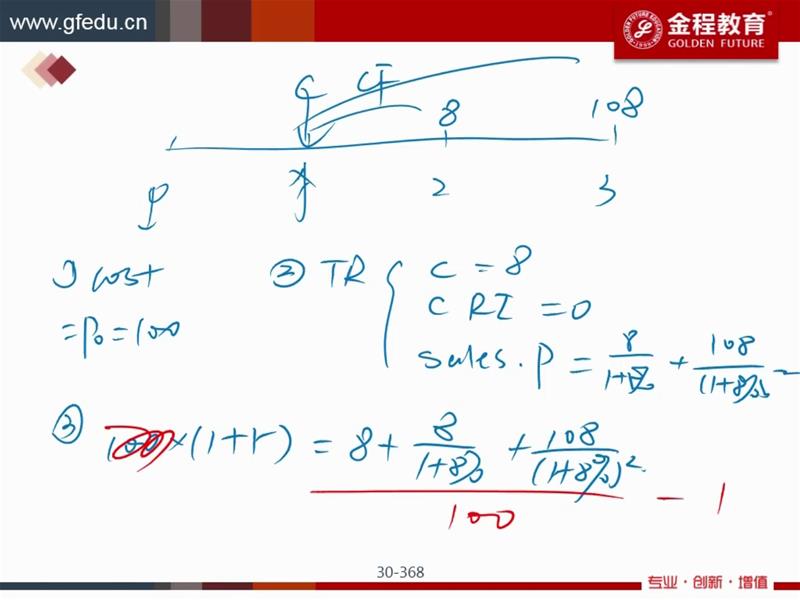 www.gfedu.cn
金程教育
GOLDEN FUTURE
CF
8 108
P 2 3
① cost ② TR { C = 8
= P₀ = 100 C RI = 0
sales. P = 8/(1+8%) + 108/(1+8%)²
③ 100×(1+r) = 8 + 8/(1+8%) + 108/(1+8%)²
100 - 1
30-368
专业·创新·增值